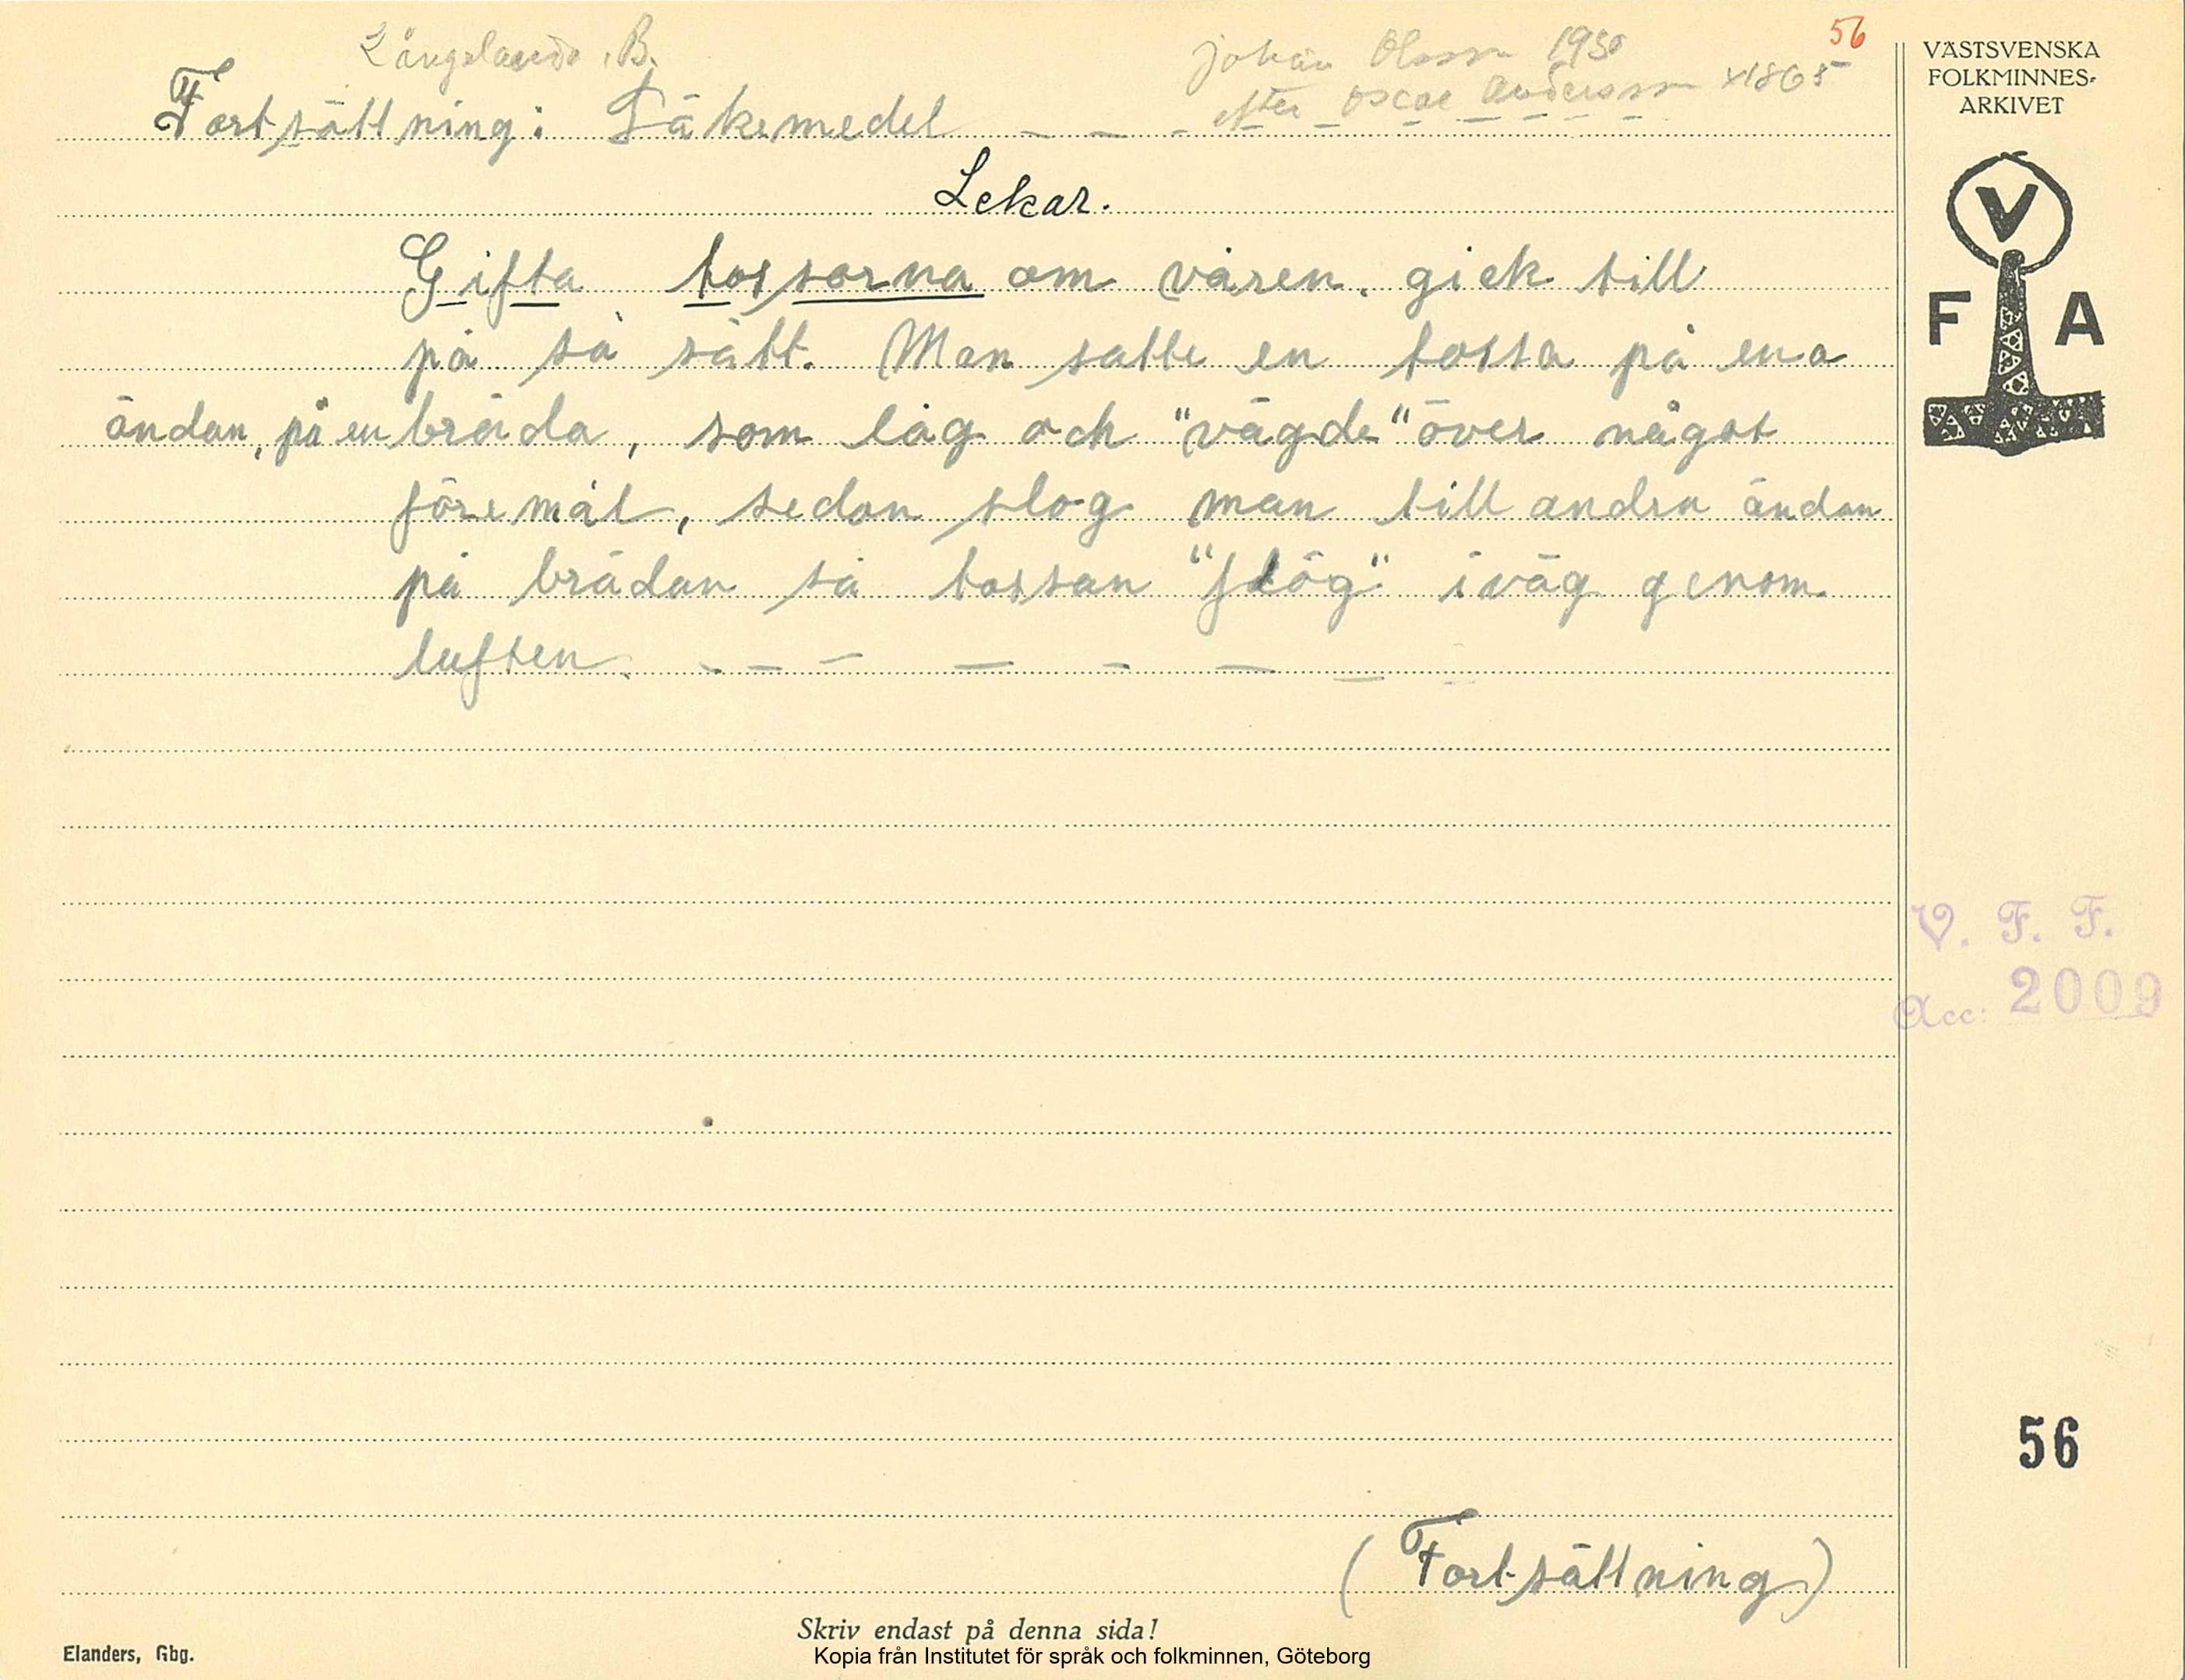 56
Långelanda, B.
Johan Olsson 1930
efter Oscar Andersson *1865
Fortsättning: Läkemedel — — -
Lekar.
Gifta tossorna om våren. gick till
på så sätt. Man satte en tossa på ena
ändan, på en bräda, som låg och "vägde" över något
föremål, sedan slog man till andra ändan
på brädan så tossan "flög" iväg genom
luften. - — — — - — —
(Fortsättning)
VÄSTSVENSKA
FOLKMINNES-
ARKIVET
V
F A
V. F. F.
Acc: 2009
56
Skriv endast på denna sida!
Elanders, Gbg.
Kopia från Institutet för språk och folkminnen, Göteborg